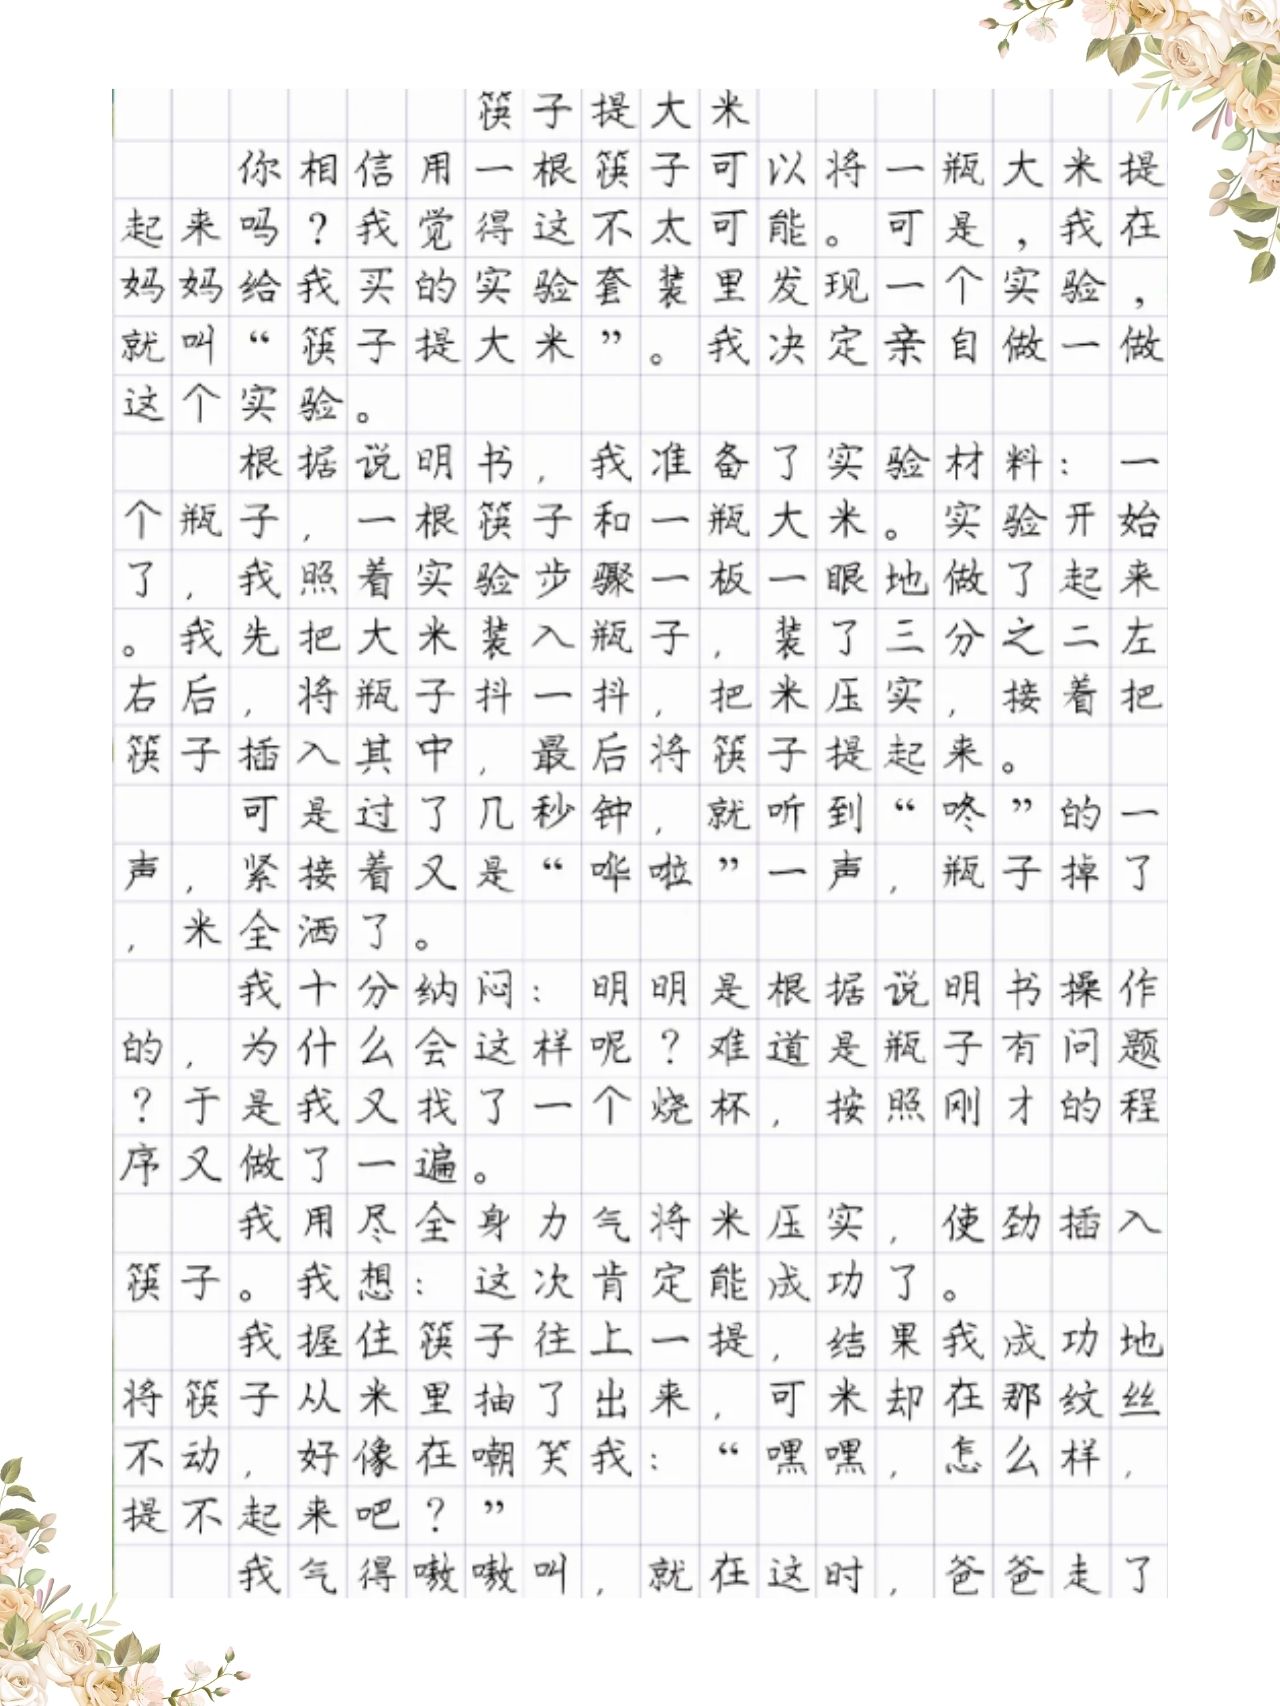 筷子提大米
你相信用一根筷子可以将一瓶大米提
起来吗？我觉得这不太可能。可是，我在
妈妈给我买的实验套装里发现一个实验，
就叫“筷子提大米”。我决定亲自做一做
这个实验。
根据说明书，我准备了实验材料：一
个瓶子，一根筷子和一瓶大米。实验开始
了，我照着实验步骤一板一眼地做了起来
。我先把大米装入瓶子，装了三分之二左
右后，将瓶子抖一抖，把米压实，接着把
筷子插入其中，最后将筷子提起来。
可是过了几秒钟，就听到“咚”的一
声，紧接着又是“哗啦”一声，瓶子掉了
，米全洒了。
我十分纳闷：明明是根据说明书操作
的，为什么会这样呢？难道是瓶子有问题
？于是我又找了一个烧杯，按照刚才的程
序又做了一遍。
我用尽全身力气将米压实，使劲插入
筷子。我想：这次肯定能成功了。
我握住筷子往上一提，结果我成功地
将筷子从米里抽了出来，可米却在那纹丝
不动，好像在嘲笑我：“嘿嘿，怎么样，
提不起来吧？”
我气得嗷嗷叫，就在这时，爸爸走了